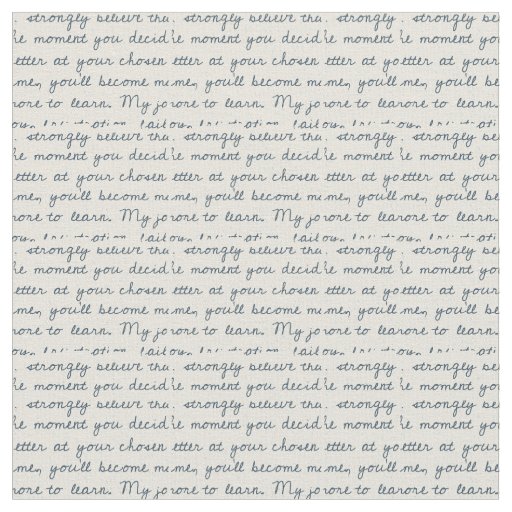 strongly believe tha. strongly believe tha. strongly. strongly be
're moment you decid're moment you decid're moment you
etter at your chosen etter at your chosen etter at yoetter at your
me, you'll become mime, you'll become mime, you'll be
rore to learn. My jorore to learn. My jorore to learore to learn.
strongly believe tha. strongly believe tha. strongly. strongly be
're moment you decid're moment you decid're moment you
etter at your chosen etter at your chosen etter at yoetter at your
me, you'll become mime, you'll become mime, you'll be
rore to learn. My jorore to learn. My jorore to learore to learn.
strongly believe tha. strongly believe tha. strongly. strongly be
're moment you decid're moment you decid're moment you
etter at your chosen etter at your chosen etter at yoetter at your
me, you'll become mime, you'll become mime, you'll be
rore to learn. My jorore to learn. My jorore to learore to learn.
strongly believe tha. strongly believe tha. strongly. strongly be
're moment you decid're moment you decid're moment you
strongly believe tha. strongly believe tha. strongly. strongly be
're moment you decid're moment you decid're moment you
etter at your chosen etter at your chosen etter at yoetter at your
me, you'll become mime, you'll become mime, you'll be
rore to learn. My jorore to learn. My jorore to learore to learn.